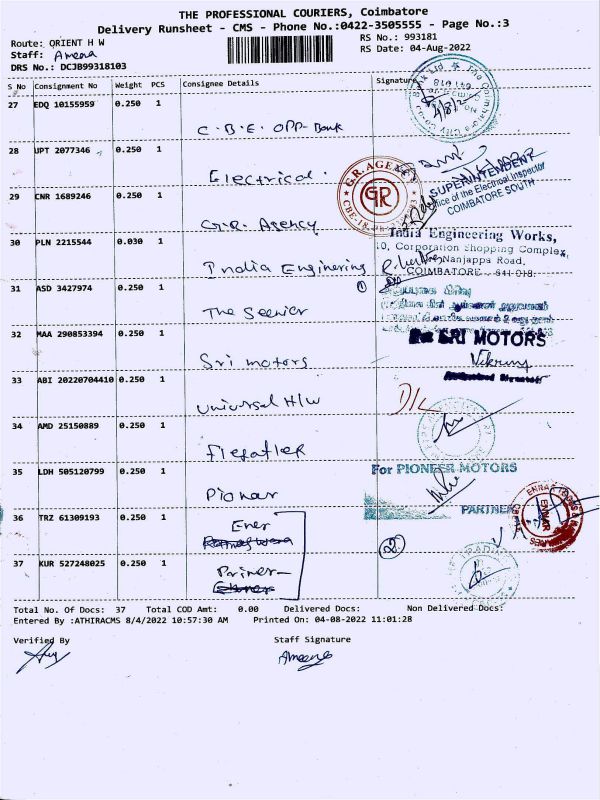 THE PROFESSIONAL COURIERS, Coimbatore
Delivery Runsheet - CMS - Phone No.:0422-3505555 - Page No.:3
Route: ORIENT H W
RS No.: 993181
Staff: Ameena
RS Date: 04-Aug-2022
DRS No.: DCJB99318103
S No Consignment No Weight PCS Consignee Details Signature
27 EDQ 10155959 0.250 1
C.B.E. OPP-Bank
4/8/2
28 UPT 2077346 0.250 1
Electrical.
SUPERINTENDENT
Office of the Electrical Inspector
COIMBATORE SOUTH
29 CNR 1689246 0.250 1
G.R. Agency
G.R. AGENCY
GR
30 PLN 2215544 0.030 1
India Enginering
India Engineering Works,
10, Corporation Shopping Complex,
Nanjappa Road,
COIMBATORE - 641 018.
31 ASD 3427974 0.250 1
①
The Seenior
32 MAA 290853394 0.250 1
Sri motors
For SRI MOTORS
33 ABI 20220704410 0.250 1
Universal H/w
D/L
34 AMD 25150889 0.250 1
35 LDH 505120799 0.250 1
Pionar
For PIONEER MOTORS
PARTNER
36 TRZ 61309193 0.250 1
Ener
②
37 KUR 527248025 0.250 1
Total No. Of Docs: 37 Total COD Amt: 0.00 Delivered Docs: Non Delivered Docs:
Entered By :ATHIRACMS 8/4/2022 10:57:30 AM Printed On: 04-08-2022 11:01:28
Verified By Staff Signature
Ameena